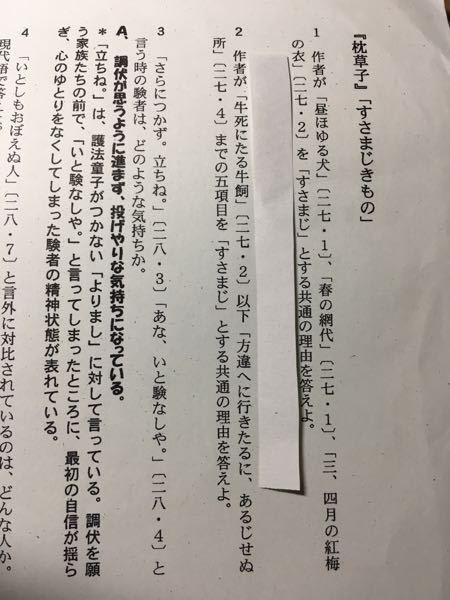 『枕草子』「すさまじきもの」
1 作者が「昼ほゆる犬」〔二七・1〕、「春の網代」〔二七・1〕、「三、四月の紅梅
の衣」〔二七・2〕を「すさまじ」とする共通の理由を答えよ。
2 作者が「牛死にたる牛飼」〔二七・2〕以下「方違へに行きたるに、あるじせぬ
所」〔二七・4〕までの五項目を「すさまじ」とする共通の理由を答えよ。
3 「さらにつかず。立ちね。」〔二八・3〕「あな、いと験なしや。」〔二八・4〕と
言う時の験者は、どのような気持ちか。
A、調伏が思うように進まず、投げやりな気持ちになっている。
*「立ちね。」は、護法童子がつかない「よりまし」に対して言っている。調伏を願
う家族たちの前で、「いと験なしや。」と言ってしまったところに、最初の自信が揺ら
ぎ、心のゆとりをなくしてしまった験者の精神状態が表れている。
4 「いとしもおぼえぬ人」〔二八・7〕と言外に対比されているのは、どんな人か。
現代語で答えよ。